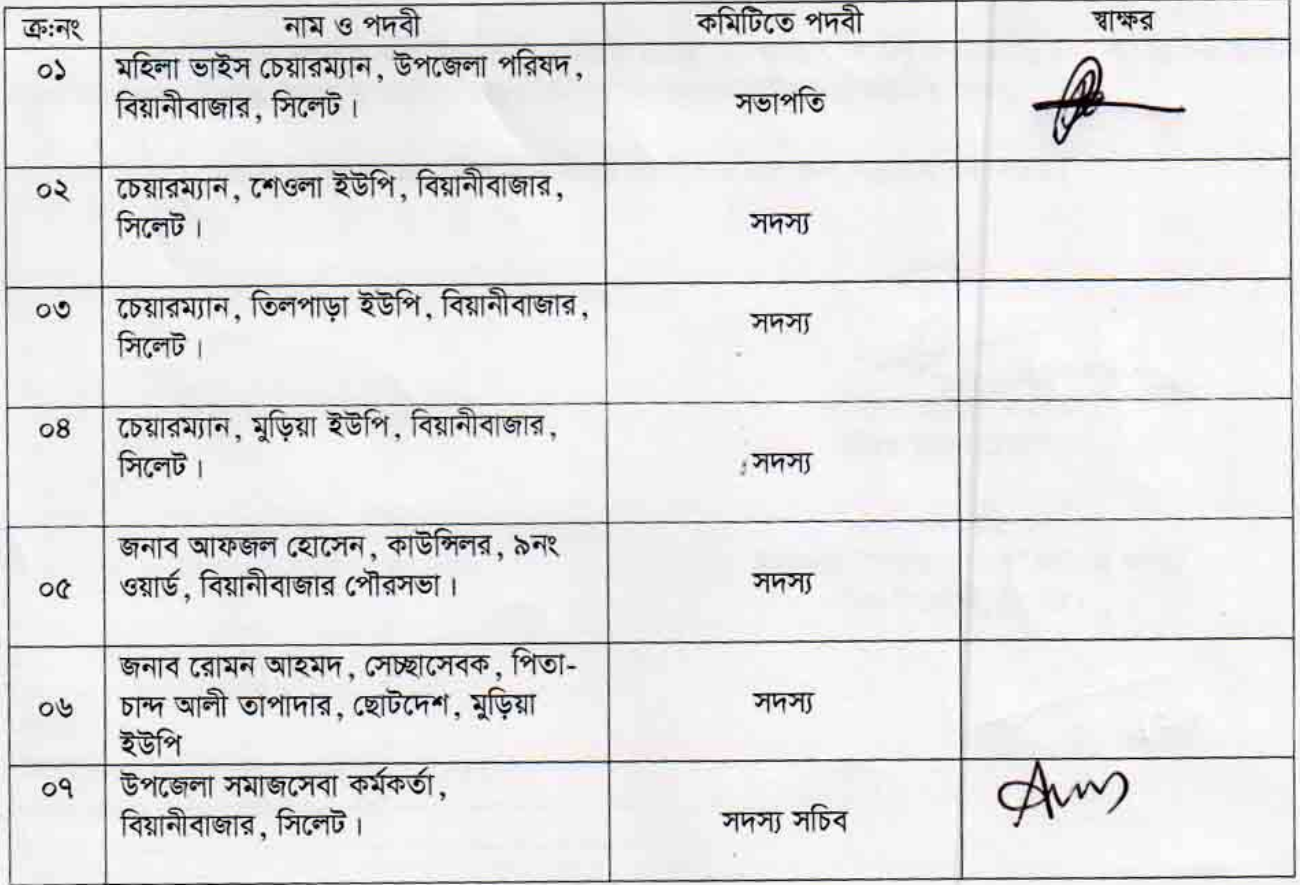 ক্র:নং নাম ও পদবী কমিটিতে পদবী স্বাক্ষর
০১ মহিলা ভাইস চেয়ারম্যান, উপজেলা পরিষদ,
বিয়ানীবাজার, সিলেট। সভাপতি
০২ চেয়ারম্যান, শেওলা ইউপি, বিয়ানীবাজার,
সিলেট। সদস্য
০৩ চেয়ারম্যান, তিলপাড়া ইউপি, বিয়ানীবাজার,
সিলেট। সদস্য
০৪ চেয়ারম্যান, মুড়িয়া ইউপি, বিয়ানীবাজার,
সিলেট। সদস্য
জনাব আফজল হোসেন, কাউন্সিলর, ৯নং
০৫ ওয়ার্ড, বিয়ানীবাজার পৌরসভা। সদস্য
জনাব রোমন আহমদ, সেচ্ছাসেবক, পিতা-
০৬ চান্দ আলী তাপাদার, ছোটদেশ, মুড়িয়া সদস্য
ইউপি
০৭ উপজেলা সমাজসেবা কর্মকর্তা,
বিয়ানীবাজার, সিলেট। সদস্য সচিব